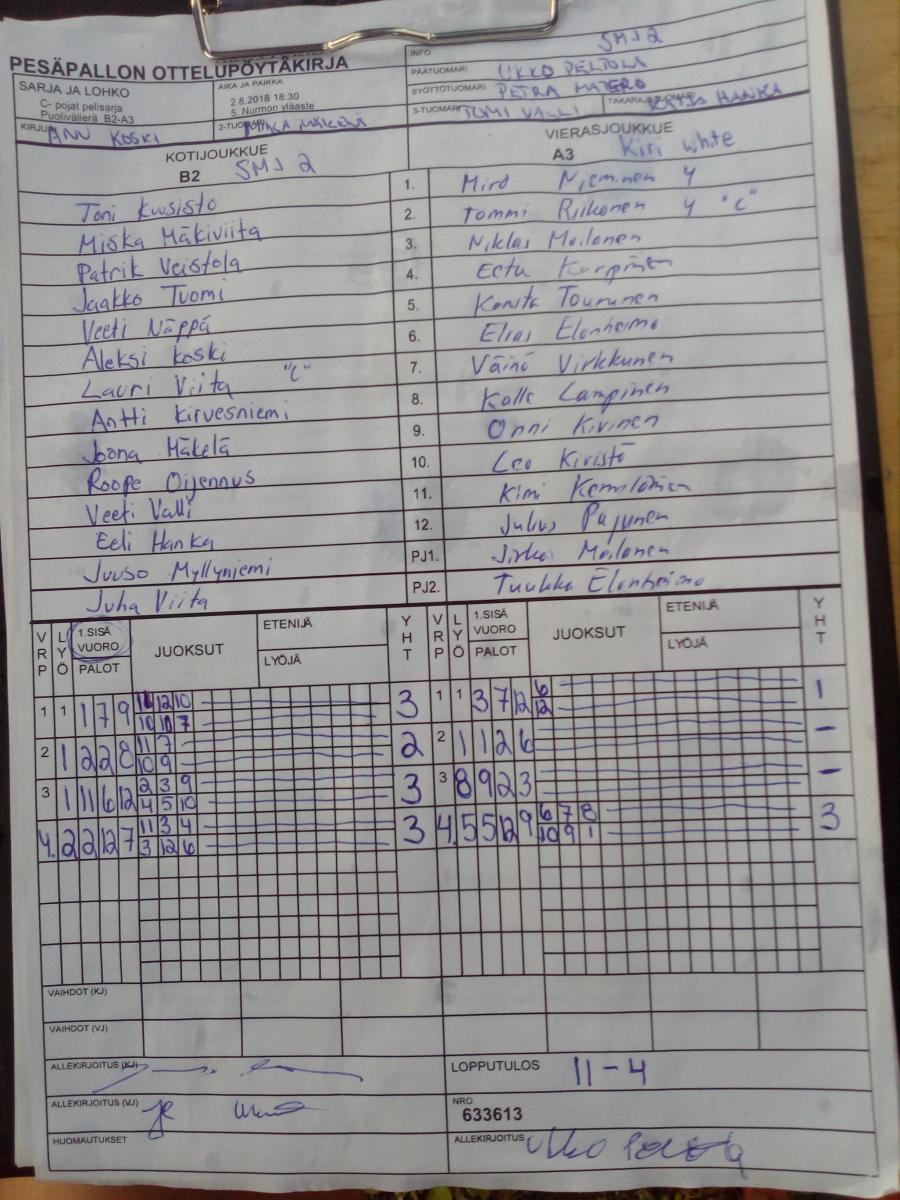 PESÄPALLON OTTELUPÖYTÄKIRJA
SARJA JA LOHKO
C- pojat pelisarja
Puolivälierä B2-A3
AIKA JA PAIKKA
2.8.2018 18:30
5. Nurmon yläaste
INFO SMJ 2
PÄÄTUOMARI UKKO PELTOLA
SYÖTTÖTUOMARI PETRA MATERO
KIRJURI ANN KOSKI
2-TUOMARI
3-TUOMARI TOMI VALLI
HANKA
KOTIJOUKKUE
B2 SMJ 2
VIERASJOUKKUE
A3 Kiri white
Toni Kuusisto 1. Miro Nieminen 4
Miska Mäkiviita 2. Tommi Riikonen 4 "C"
Patrik Veistola 3. Niklas Moilanen
Jaakko Tuomi 4. Eetu
Veeti Näppä 5.
Aleksi Koski 6. Elias Elonheimo
Lauri Viita "C" 7. Väinö Virkkunen
Antti Kirvesniemi 8. Kalle Lampinen
Joona Mäkelä 9. Onni Kivinen
Roope Oijennus 10. Leo Kiristö
Veeti Valli 11. Kimi
Eeli Hanka 12. Julius Pajunen
Juuso Myllyniemi PJ1. Moilanen
Juha Viita PJ2. Tuukka Elonheimo
VRP LYÖ 1.SISÄ VUORO PALOT JUOKSUT ETENIJÄ LYÖJÄ YHT VRP LYÖ 1.SISÄ VUORO PALOT JUOKSUT ETENIJÄ LYÖJÄ YHT
1 1 1 7 9 11 12 10 3 1 1 3 7 12 6 1
10 10 7 12
2 1 2 2 8 11 7 2 2 1 1 2 6 –
10 9
3 1 11 6 12 2 3 9 3 3 8 9 2 3 –
4 5 10
4. 2 2 12 7 11 3 4 3 4. 5 5 12 9 6 7 8 3
3 12 6 10 9 1
VAIHDOT (KJ)
VAIHDOT (VJ)
ALLEKIRJOITUS (KJ)
LOPPUTULOS 11-4
ALLEKIRJOITUS (VJ)
NRO
633613
HUOMAUTUKSET
ALLEKIRJOITUS